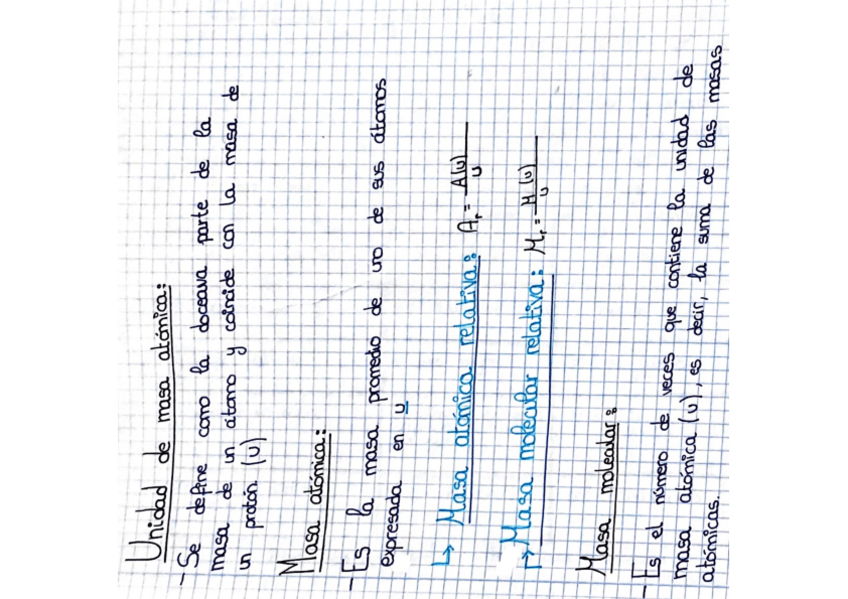 Unidad de masa atómica:
- Se define como la doceava parte de la
masa de un átomo y coincide con la masa de
un protón (u)
Masa atómica:
- Es la masa promedio de uno de sus átomos
expresada en u
↳ Masa atómica relativa: Ar = A(u)/u
↱ Masa molecular relativa: Mr = M(u)/u
Masa molecular:
- Es el número de veces que contiene la unidad de
masa atómica (u), es decir, la suma de las masas
atómicas.